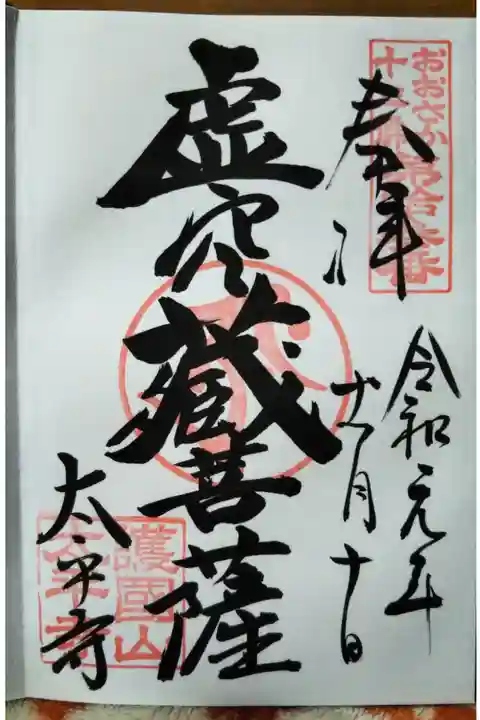 奉拝
おおさか
十三佛第十三番
令和元年
十一月十日
虚空藏菩薩
太平寺
護國山
太平寺